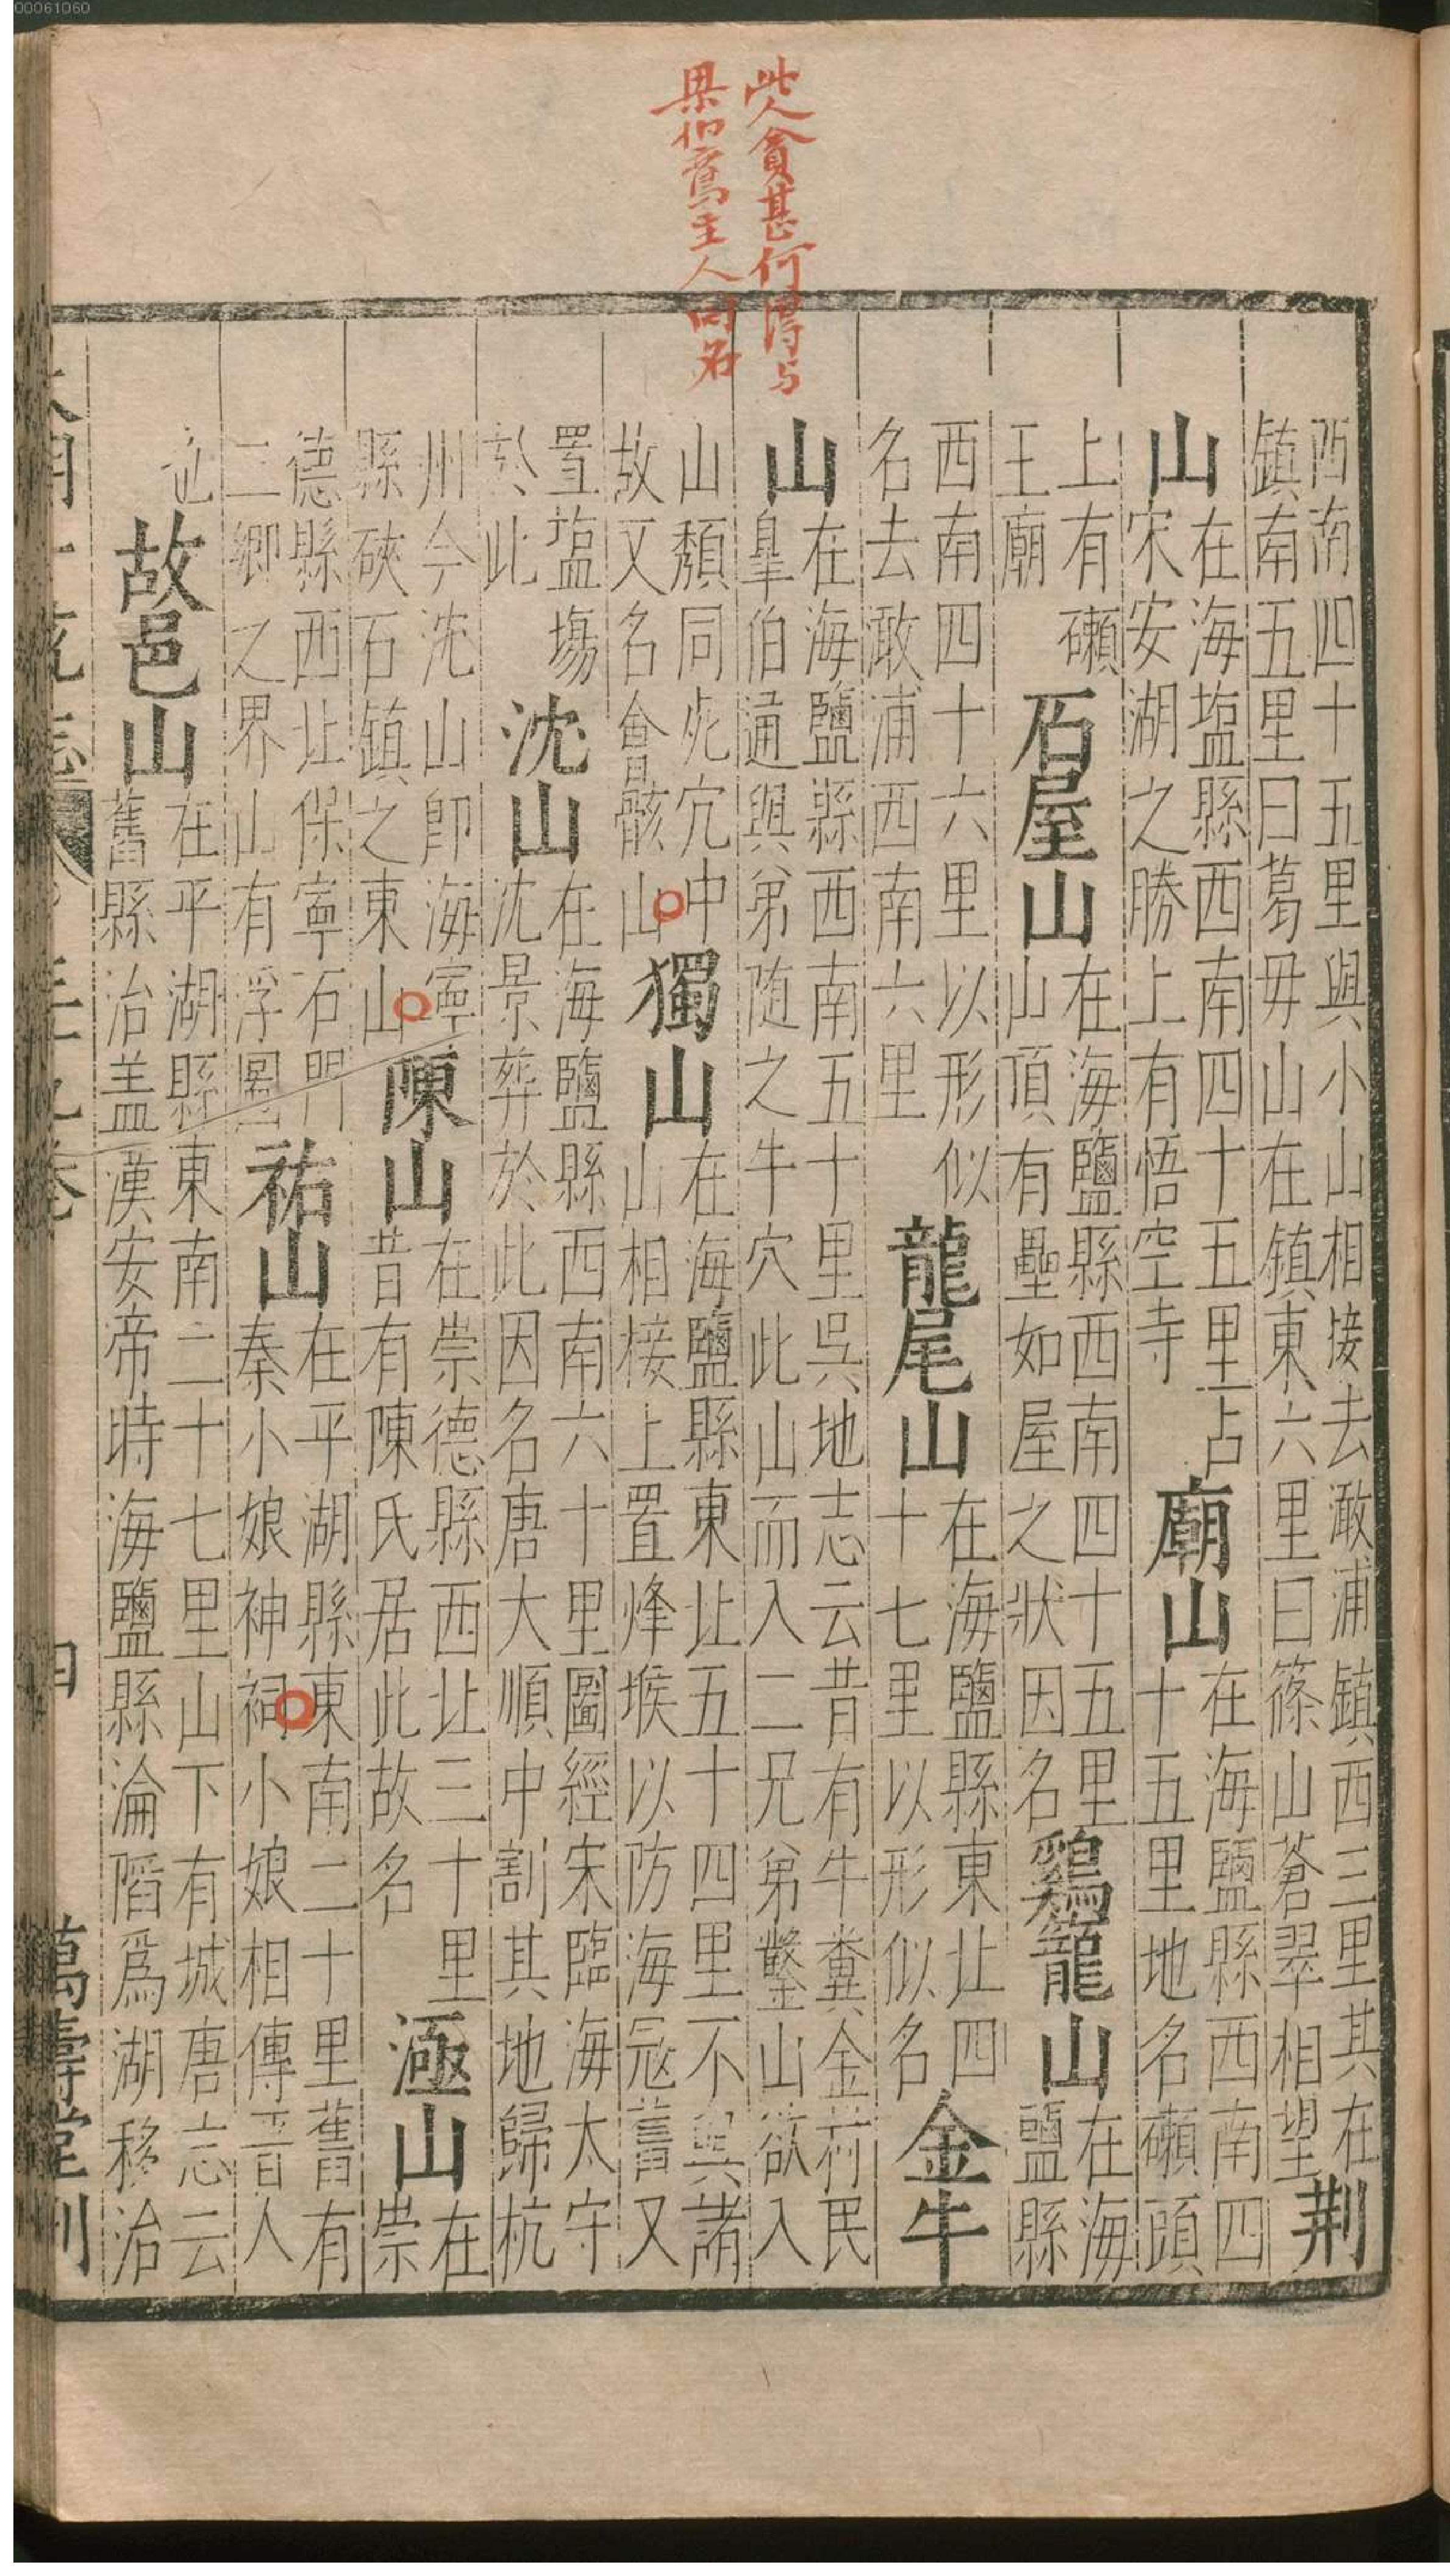 00061060
此人貪甚何得与
梁伯鸞主人同名
西南四十五里與小山相接去澉浦鎮西三里其在
鎮南五里曰葛毋山在鎮東六里曰篠山蒼翠相望
荆
山
在海塩縣西南四十五里占
宋安湖之勝上有悟空寺
廟山
在海鹽縣西南四
十五里地名瀬頭
上有瀬
王廟
石屋山
在海鹽縣西南四十五里
山頂有壘如屋之狀因名
鷄籠山
在海
鹽縣
西南四十六里以形似
名去澉浦西南六里
龍尾山
在海鹽縣東北四
十七里以形似名
金牛
山
在海鹽縣西南五十里吳地志云昔有牛糞金村民
臯伯通與弟随之牛穴此山而入二兄弟鑿山欲入
山頽同死穴中
故又名會骸山
獨山
在海鹽縣東北五十四里不與諸
山相接上置烽堠以防海冦舊又
置塩塲
於此
沈山
在海鹽縣西南六十里圖經宋臨海太守
沈景葬於此因名唐大順中割其地歸杭
州今沈山卽海寧
縣硤石鎮之東山
陳山
在崇德縣西北三十里
昔有陳氏居此故名
㴲山
在
崇
德縣西北保寧石門
二鄉之界山有浮圖
祐山
在平湖縣東南二十里舊有
秦小娘神祠小娘相傳晋人
也
故邑山
在平湖縣東南二十七里山下有城唐志云
舊縣治盖漢安帝時海鹽縣淪䧟爲湖移治
萬壽堂刊